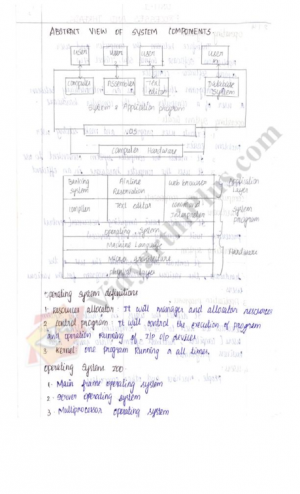 ABSTRACT VIEW OF SYSTEM COMPONENTS.
user user user user
compiler Assembler Text editor Database system
System & Application program
OS
Computer Hardware
Banking system Airline Reservation web browser Application Layer
compiler Text editor command interpreter System program
operating system
Machine Language
micro architecture Hardware
physical layer
Operating system definitions
1. Resources allocator It will manages and allocator resources
2. control program It will control the execution of program
and operation running of I/p o/p devices
3. Kernel one program running @ all times.
Operating System zoo
1. Main frame operating system
2. Server operating system
3. Multiprocessor operating system